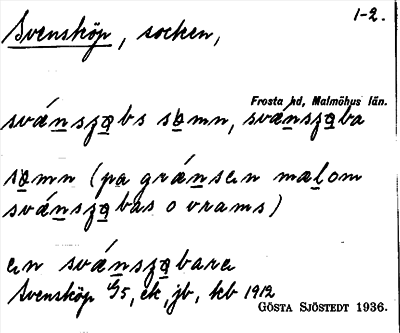 1-2.
Svensköp, socken,
Frosta hd, Malmöhus län.
svánszabs samn, svánszaba
samn (pa gránsen malom
svánszabas o vrams)
en svánszabare
Svensköp 4/5, ek, jb, kb 1912
GÖSTA SJÖSTEDT 1936.